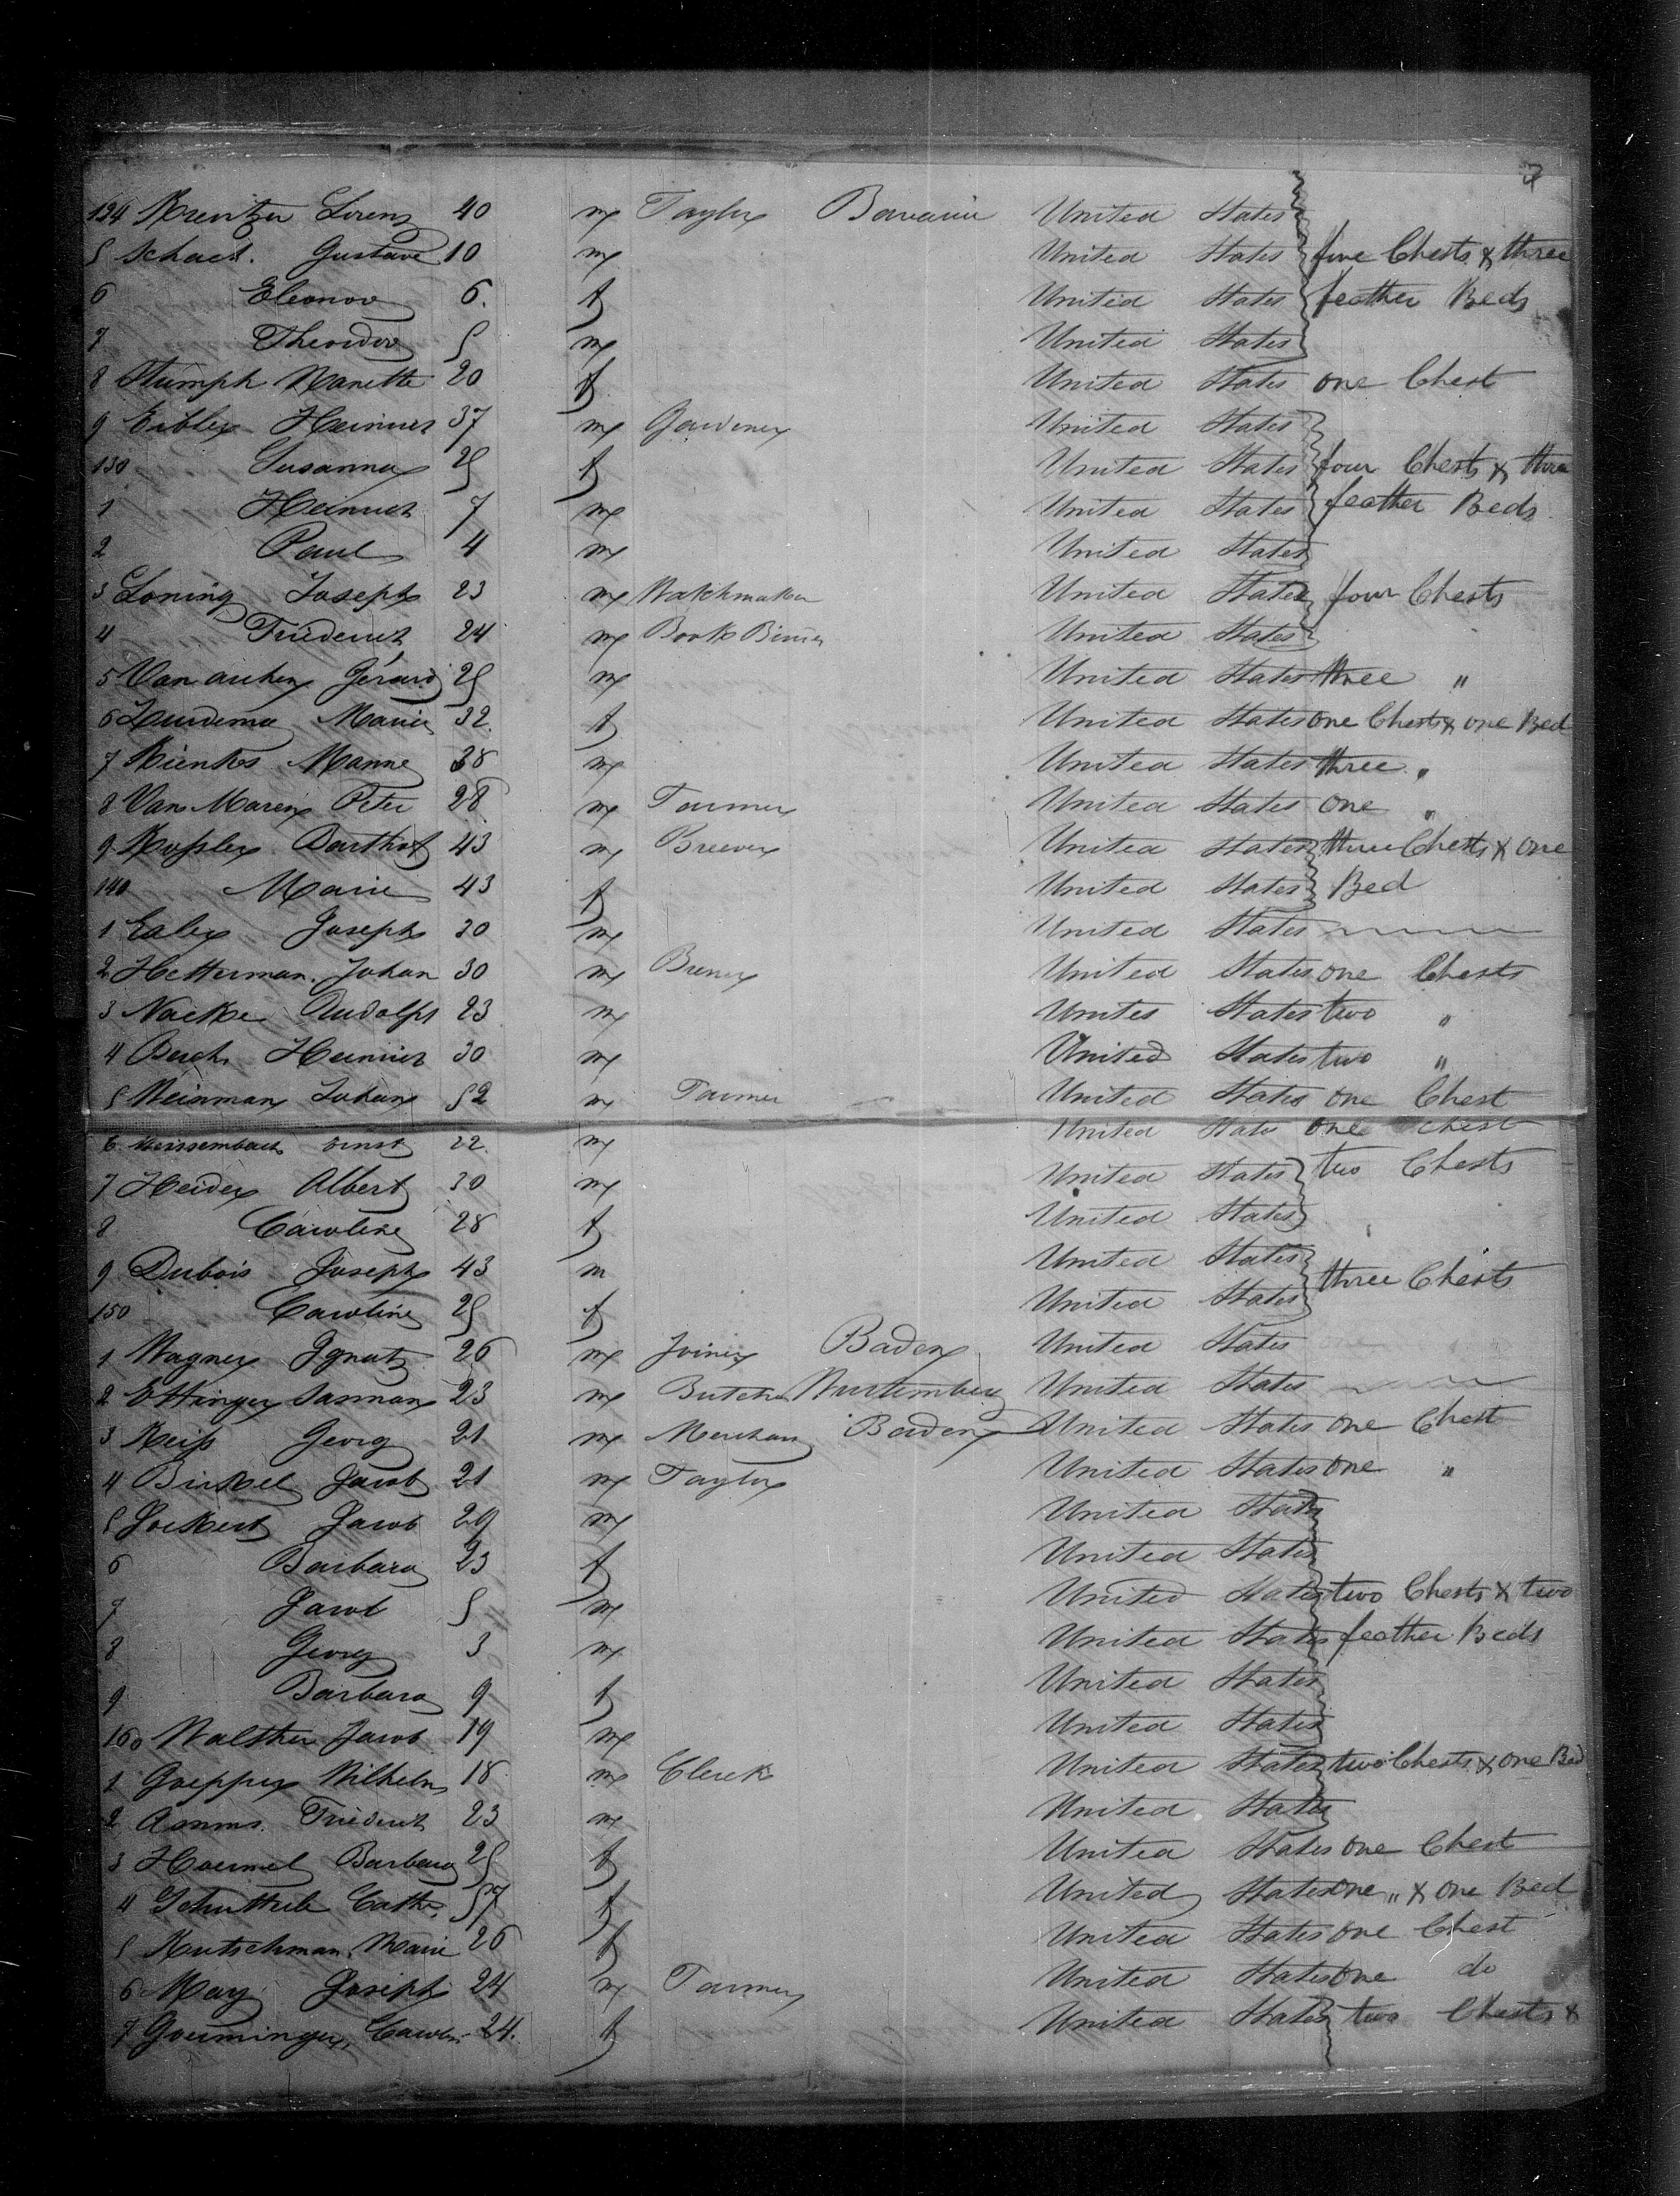 7
124 Kreutzer Lorenz 40 m Taylor Bavaria United States
5 Schaed. Gustave 10 m United States five Chests & three
6 Eleonor 6. f United States feather Beds
7 Theodor 5 m United States
8 Stumph Nanette 20 f United States one Chest
9 Eibler Heinrich 37 m Gardener United States
130 Susanna 25 f United States four Chests & three
1 Heinrich 7 m United States feather Beds
2 Paul 4 m United States
3 Loning Joseph 23 m Watchmaker United States four Chests
4 Friederich 24 m Book Binder United States
5 Van Gérard 25 m United States three "
6 Marie 32. f United States one Chests & one Bed
7 Rienks Manne 38 m United States three "
8 Van Maren Peter 28 m Farmer United States one "
9 Barthol 43 m Brewer United States three Chests & one
140 Marie 43 f United States Bed
1 Ealer Joseph 30 m United States
2 Hetterman. Johan 30 m Brewer United States one Chests
3 Naeke Rudolph 23 m United States two "
4 Heinrich 30 m United States two "
5 Weinman Johan 52 m Farmer United States one Chest
6 Weissembach Ernst 22. m United States one Chest
7 Heider Albert 30 m United States two Chests
8 Caroline 28 f United States
9 Dubois Joseph 43 m United States three Chests
150 Caroline 25 f United States
1 Wagner Ignatz 26 m Joiner Baden United States
2 Ettinger 23 m Butcher Wurtemberg United States
3 Reiß Georg 21 m Merchant Baden United States one Chest
4 Binkel Jacob 21 m Taylor United States one "
5 Jockert Jacob 29 m United States
6 Barbara 23 f United States
7 Jacob 5 m United States two Chests & two
8 Georg 3 m United States feather Beds
9 Barbara 9 f United States
160 Walther Jacob 19 m United States
1 Goepper Wilhelm 18 m Clerk United States two Chests & one Bed
2 Friederich 23 m United States
3 Hoermel Barbara 25 f United States one Chest
4 Cathe. 57 f United States one " & one Bed
5 Kutschman. Marie 26 f United States one Chest
6 May Joseph 24 m Farmer United States one do
7 Goerminger, Carolin 24. f United States two Chests &